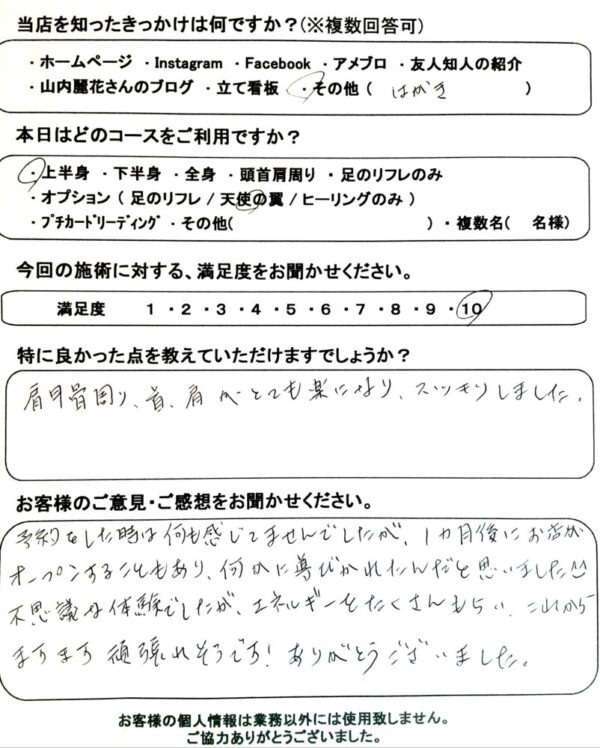 当店を知ったきっかけは何ですか？(※複数回答可)
・ホームページ ・Instagram ・Facebook ・アメブロ ・友人知人の紹介
・山内麗花さんのブログ ・立て看板 ・その他（ はがき ）
本日はどのコースをご利用ですか？
・上半身 ・下半身 ・全身 ・頭首肩周り ・足のリフレのみ
・オプション（ 足のリフレ / 天使の翼 / ヒーリングのみ ）
・ﾌﾟﾁｶｰﾄﾞﾘｰﾃﾞｨﾝｸﾞ ・その他( )・複数名( 名様)
今回の施術に対する、満足度をお聞かせください。
満足度 1 ・2 ・3 ・4 ・5 ・6 ・7 ・8 ・9 ・10
特に良かった点を教えていただけますでしょうか？
肩甲骨周り、首、肩がとても楽になり、スッキリしました。
お客様のご意見・ご感想をお聞かせください。
予約をした時は何も感じてませんでしたが、1カ月後にお店が
オープンすることもあり、何かに導びかれたんだと思いました
不思議な体験でしたが、エネルギーをたくさんもらい、これから
ますます頑張れそうです！ありがとうございました。
お客様の個人情報は業務以外には使用致しません。
ご協力ありがとうございました。